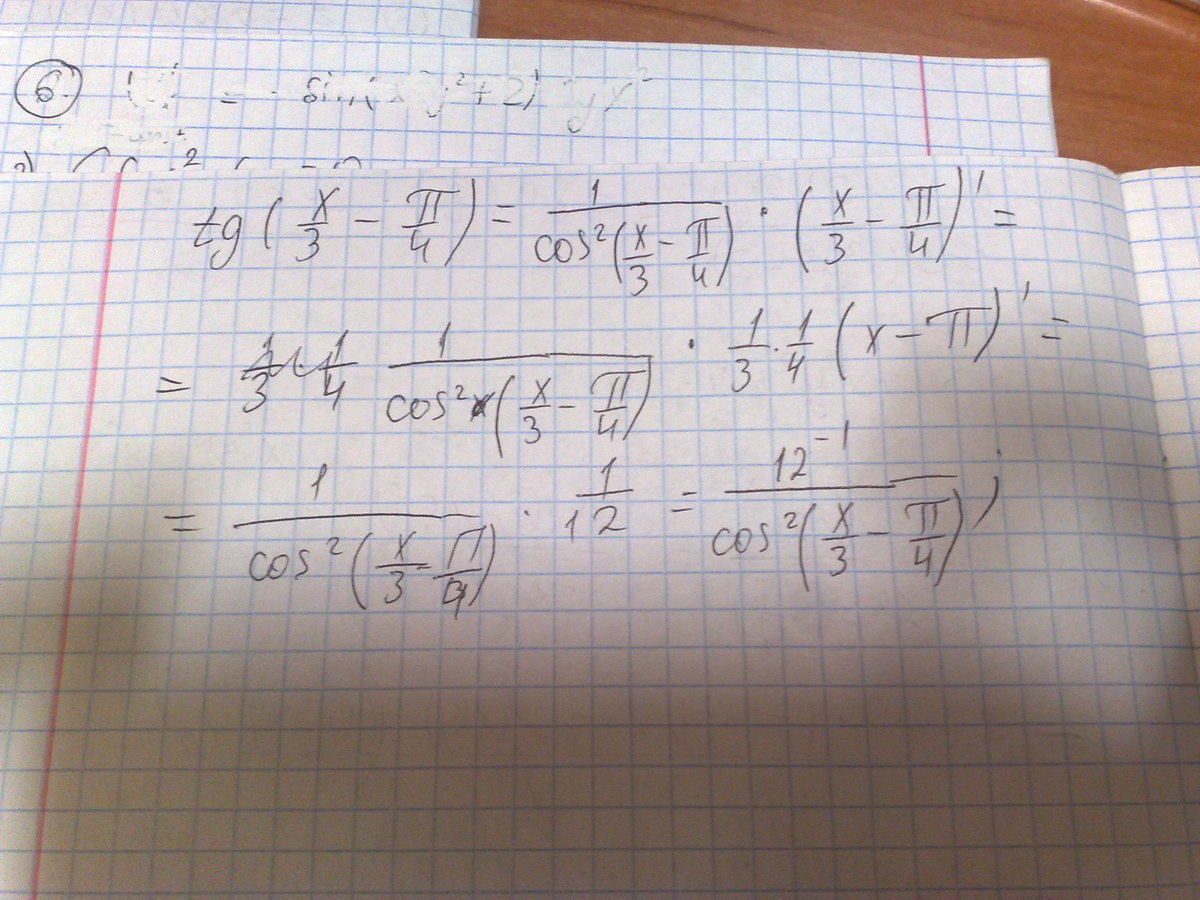 6 = - sin( ² + 2) tg x²
tg(x/3 - π/4) = 1/cos²(x/3 - π/4) · (x/3 - π/4)' =
= 1/3 · 1/4 1/cos²(x/3 - π/4) · 1/3 · 1/4 (x - π)' =
= 1/cos²(x/3 - π/4) · 1/12 = 12⁻¹/cos²(x/3 - π/4);